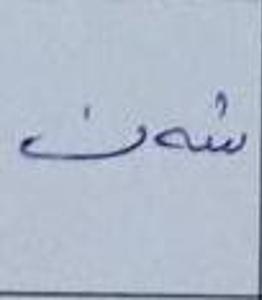 شەن